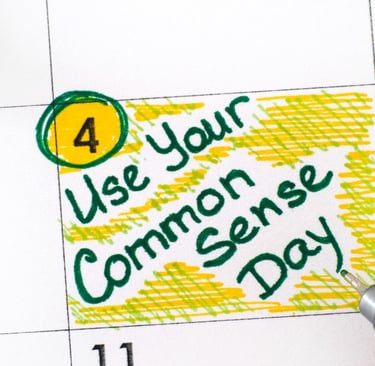 4
Use Your
Common
Sense
Day
11